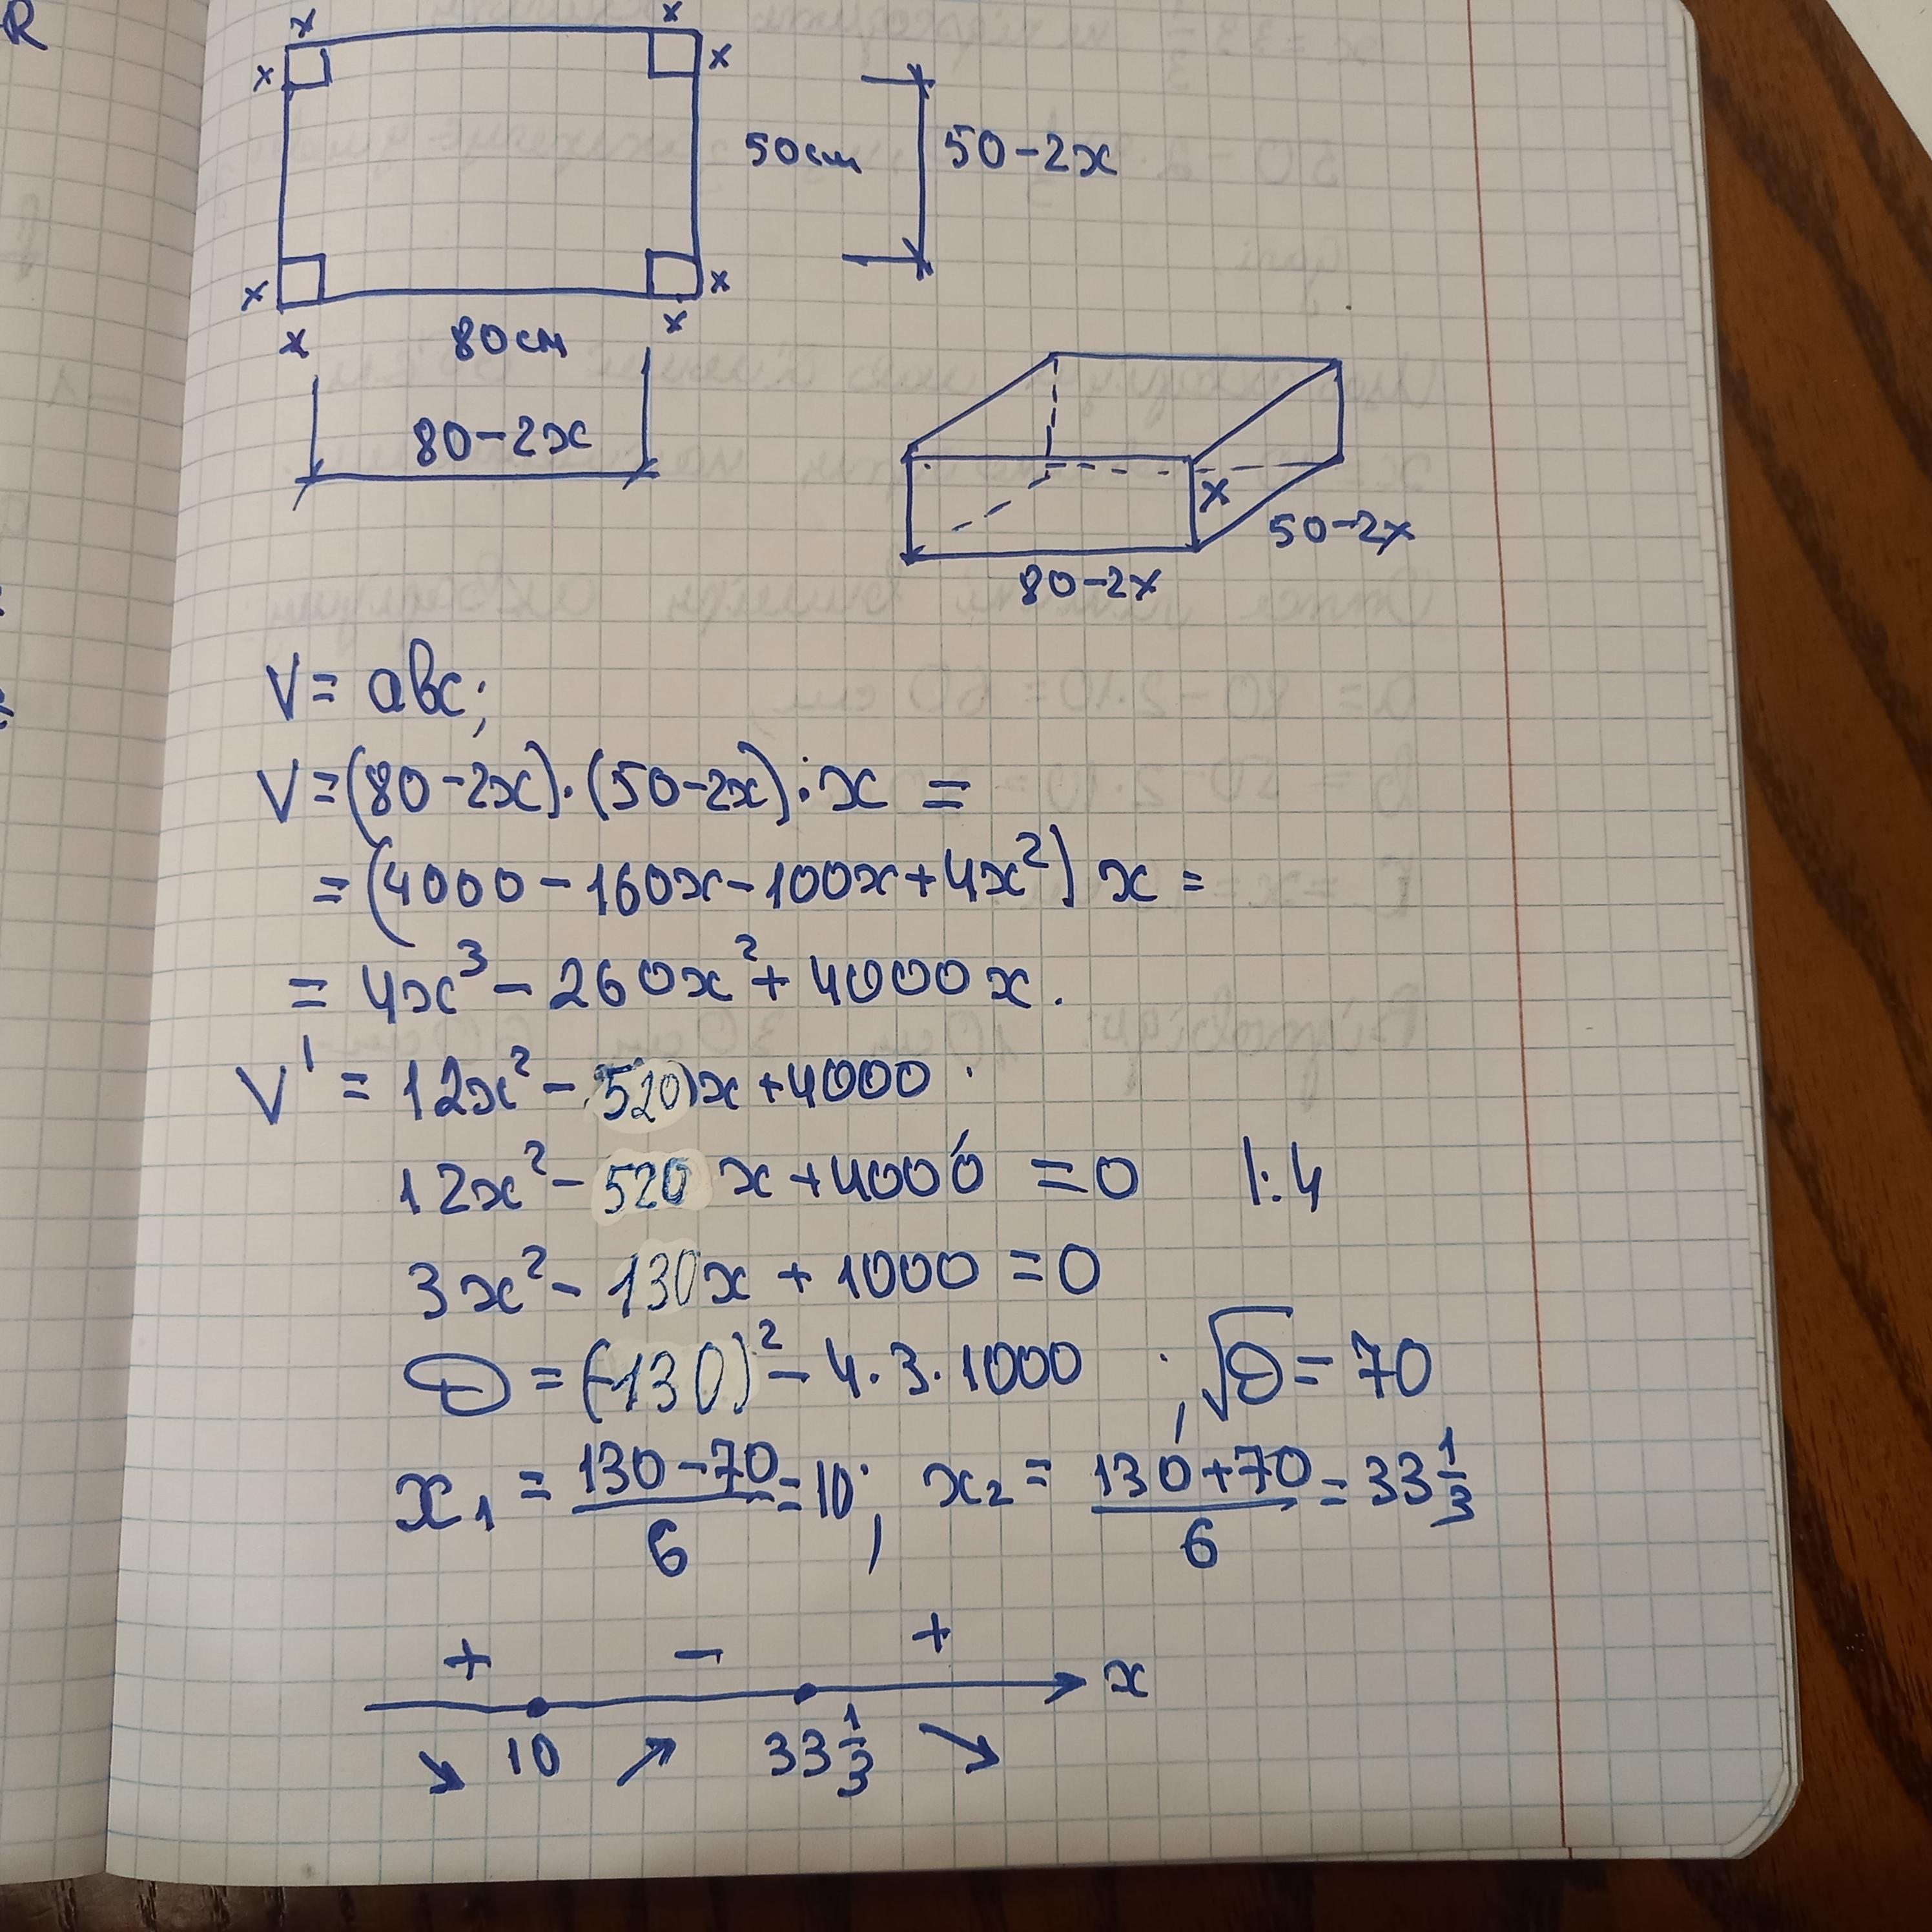 R
x x
x x
50см 50-2x
x x
x x
80см
80-2x
x
50-2x
80-2x
V= abc;
V=(80-2x)·(50-2x)·x =
=(4000-160x-100x+4x²) x =
= 4x³-260x²+4000x.
V' = 12x²-520x+4000
12x²-520x+4000 =0 |:4
3x²-130x+1000=0
D=(-130)²-4·3·1000, √D=70
x₁ = (130-70)/6 =10; x₂ = (130+70)/6 = 33 1/3
+ - +
x
↘ 10 ↗ 33 1/3 ↘